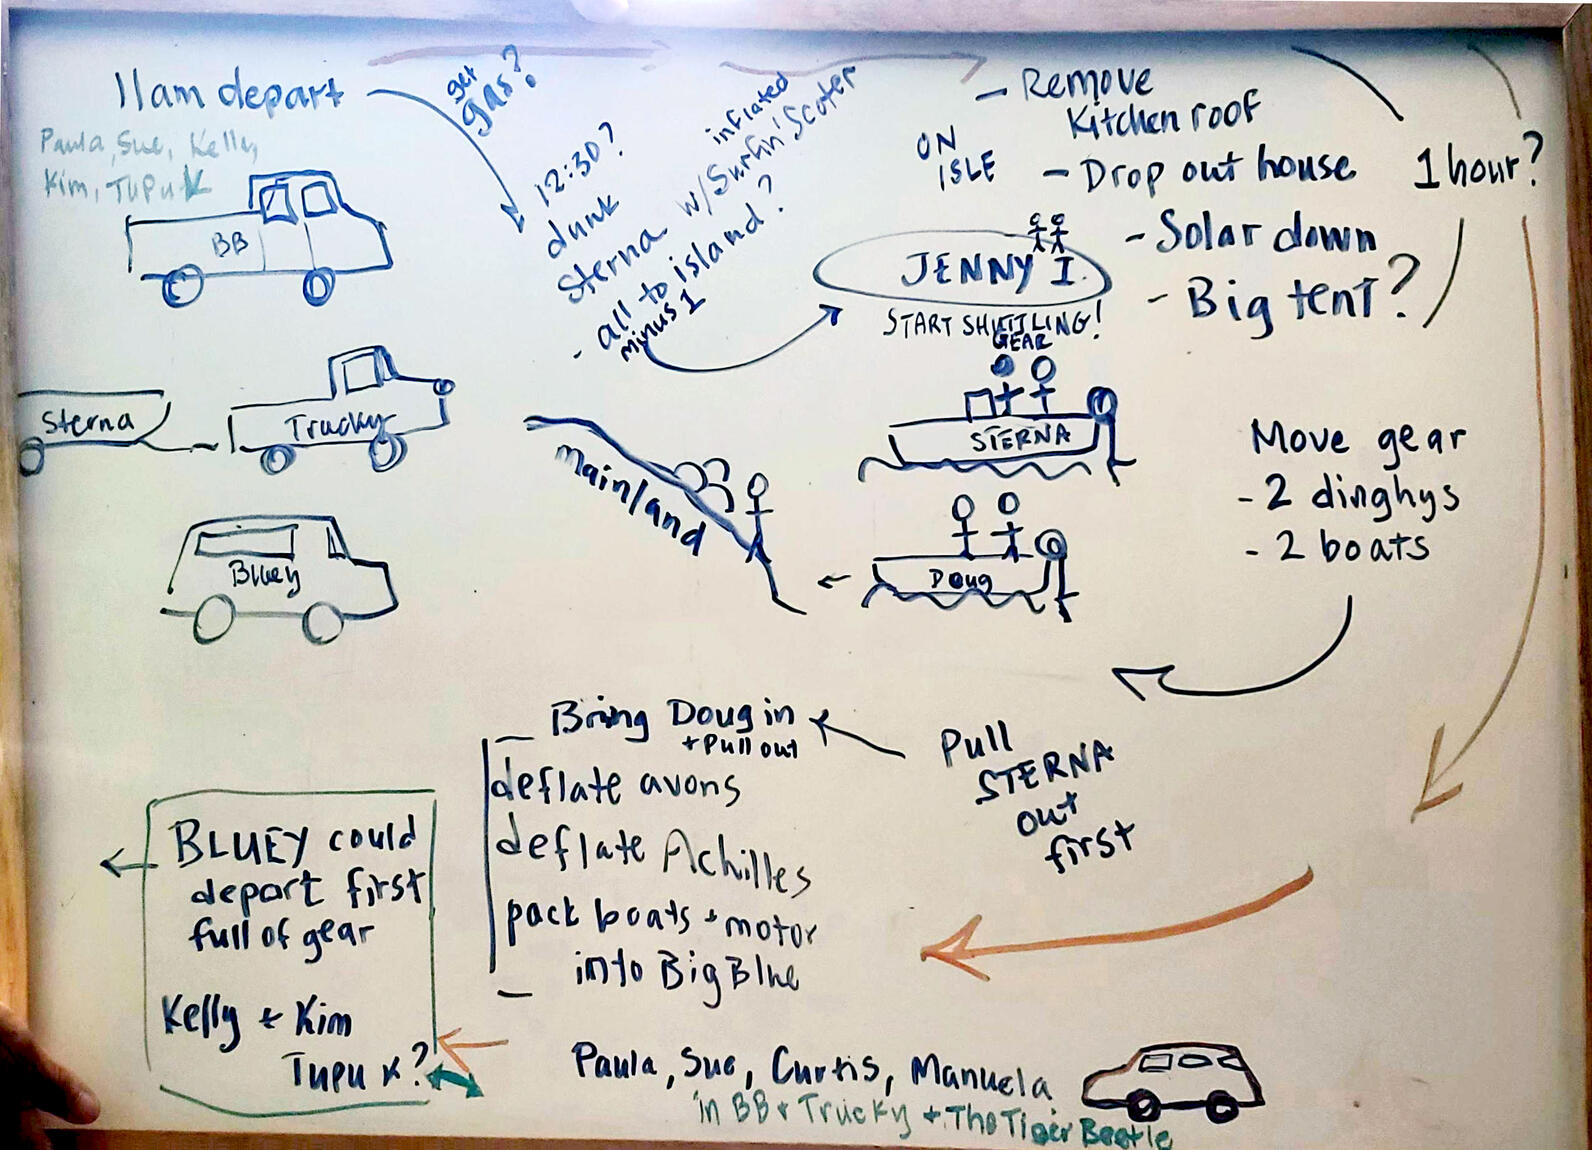 11am depart
Paula, Sue, Kelly,
Kim, Tupu K
BB
Sterna
Trucky
Bluey
get
gas?
12:30?
dunk
Sterna w/ Surfin' Scoter
inflated
- all to island?
minus 1
mainland
ON
ISLE
- Remove
Kitchen roof
- Drop out house
- Solar down
- Big tent?
1 hour?
JENNY I.
START SHUTTLING!
GEAR
STERNA
Doug
Move gear
- 2 dinghys
- 2 boats
Pull
STERNA
out
first
Bring Doug in
+ Pull out
deflate avons
deflate Achilles
pack boats + motor
into Big Blue
BLUEY could
depart first
full of gear
Kelly + Kim
Tupu K?
Paula, Sue, Curtis, Manuela
in BB + Trucky + The Tiger Beetle